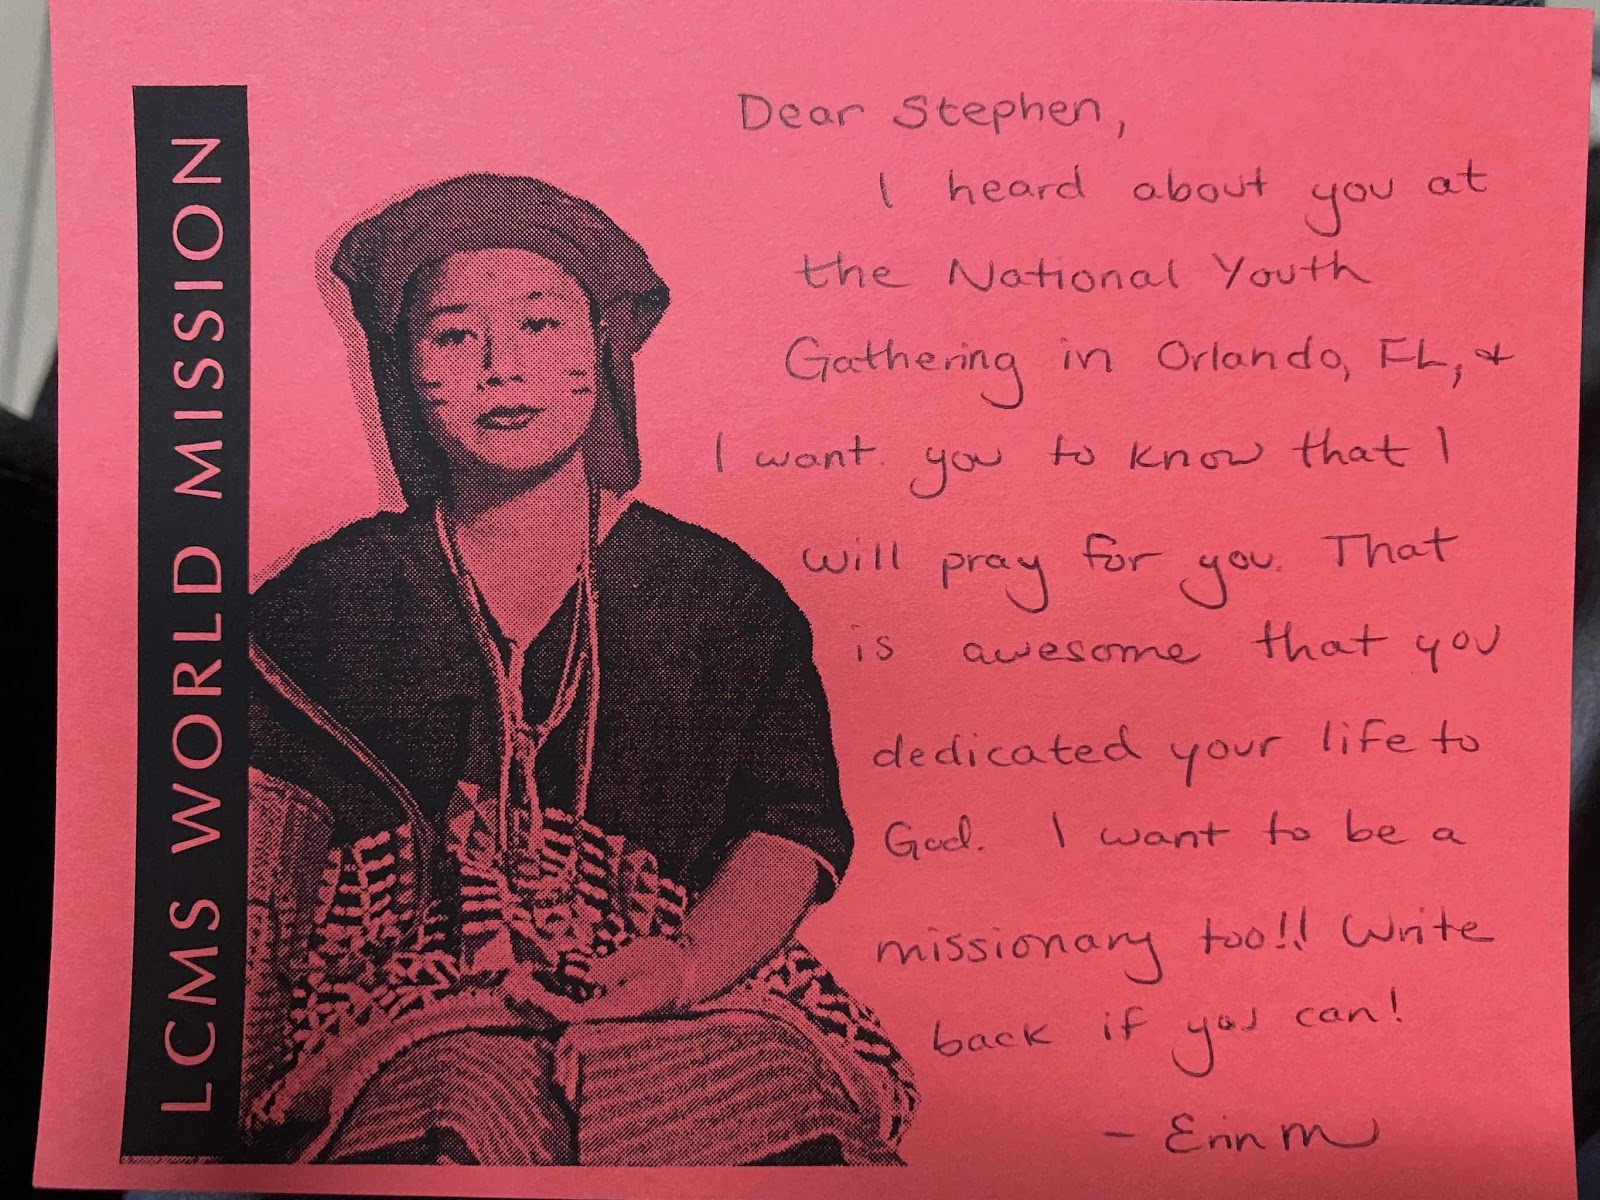 LCMS WORLD MISSION
Dear Stephen,
I heard about you at
the National Youth
Gathering in Orlando, FL, &
I want you to know that I
will pray for you. That
is awesome that you
dedicated your life to
God. I want to be a
missionary too!! Write
back if you can!
- Erin M